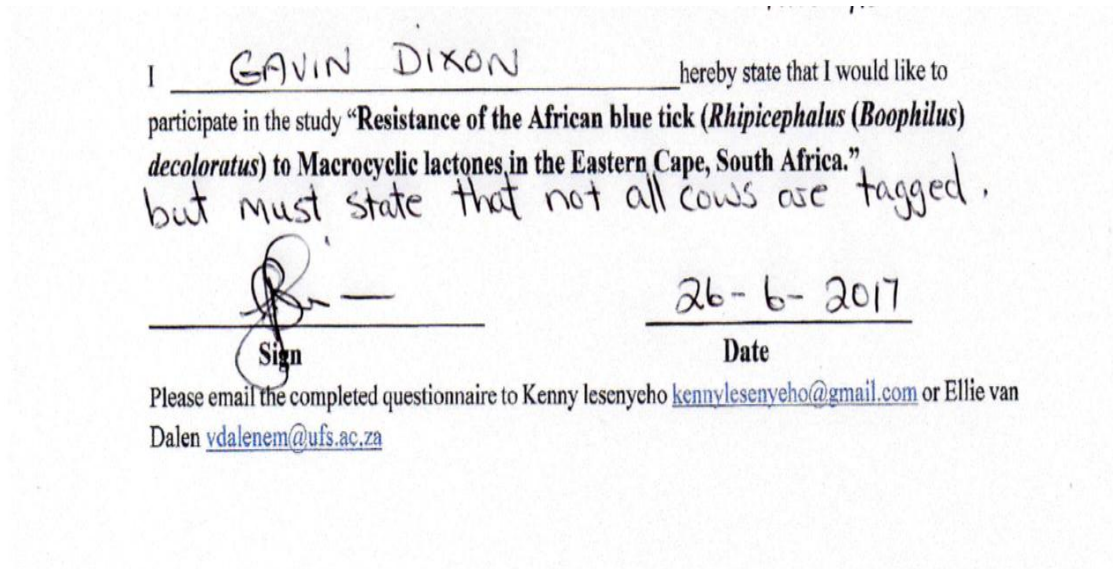 I GAVIN DIXON hereby state that I would like to
participate in the study “Resistance of the African blue tick (Rhipicephalus (Boophilus)
decoloratus) to Macrocyclic lactones in the Eastern Cape, South Africa.”
but must state that not all cows are tagged.
26-6-2017
Sign Date
Please email the completed questionnaire to Kenny lesenyeho kennylesenyeho@gmail.com or Ellie van
Dalen vdalenem@ufs.ac.za